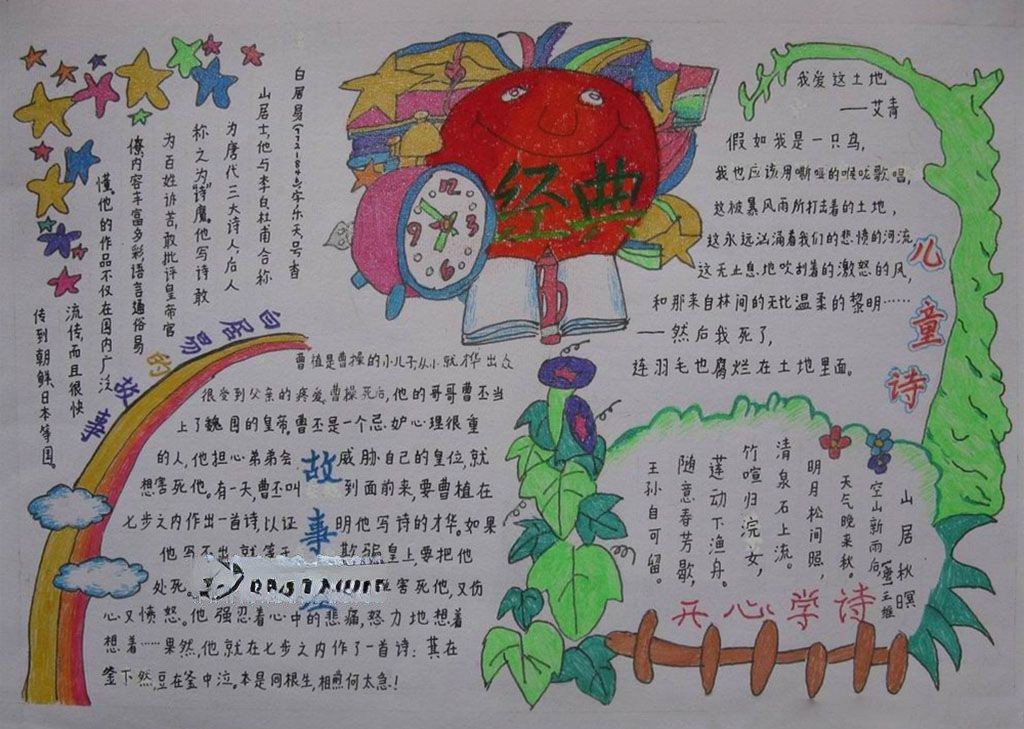 白居易(772-846)字乐天号香
山居士,他与李白杜甫合称
为唐代三大诗人,后人
称之为“诗”魔。他写诗敢
为百姓诉苦,敢批评皇帝官
僚内容丰富多彩语言通俗易
懂。他的作品不仅在国内广泛
流传,而且很快
传到朝鲜日本等国。
白居易的故事
经典
12
3
6
9
我爱这土地
——艾青
假如我是一只鸟,
我也应该用嘶哑的喉咙歌唱,
这被暴风雨所打击着的土地,
这永远汹涌着我们的悲愤的河流
这无止息地吹刮着的激怒的风,
和那来自林间的无比温柔的黎明……
——然后我死了,
连羽毛也腐烂在土地里面。
儿童诗
曹植是曹操的小儿子从小就才华出众
很受到父亲的疼爱,曹操死后,他的哥哥曹丕当
上了魏国的皇帝,曹丕是一个忌妒心理很重
的人,他担心弟弟会威胁自己的皇位,就
想害死他。有一天,曹丕叫到面前来,要曹植在
七步之内作出一首诗,以证明他写诗的才华。如果
他写不出,就等于欺弱皇上要把他
处死。害死他,又伤
心又愤怒。他强忍着心中的悲痛,努力地想着
想着……果然,他就在七步之内作了一首诗:萁在
釜下然,豆在釜中泣。本是同根生,相煎何太急!
故事
山居秋暝
(唐)王维
空山新雨后,
天气晚来秋。
明月松间照,
清泉石上流。
竹喧归浣女,
莲动下渔舟。
随意春芳歇,
王孙自可留。
开心学诗